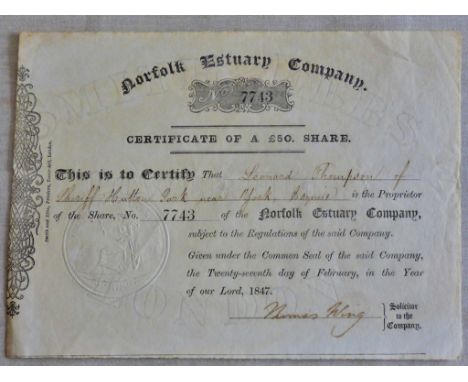 Norfolk Estuary Company.
No. 7743
CERTIFICATE OF A £50. SHARE.
This is to Certify That Leonard Thompson of
Sheriff Hutton Park near York, Esquire is the Proprietor
of the Share, No. 7743 of the Norfolk Estuary Company,
subject to the Regulations of the said Company.
Given under the Common Seal of the said Company,
the Twenty-seventh day of February, in the Year
of our Lord, 1847.
Thomas Wing
Solicitor
to the
Company.